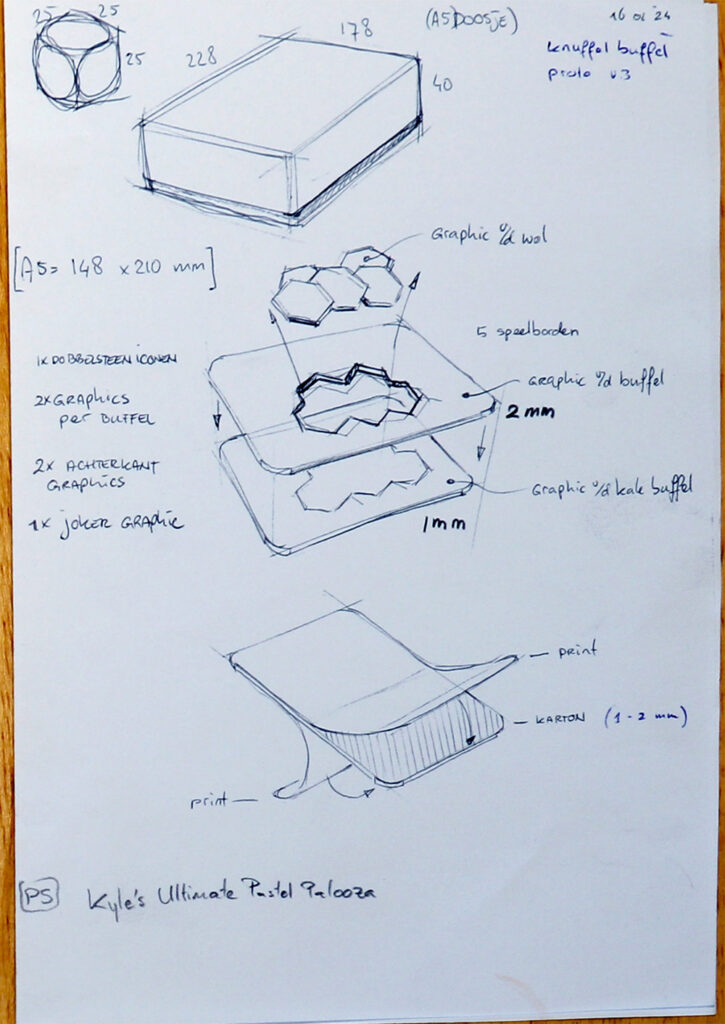 25 25
25
228
178
40
(A5 DOOSJE)
16 01 '24
knuffel buffel
proto v3
[A5 = 148 x 210 mm]
Graphic v/d wol
5 speelborden
1x DOBBELSTEEN ICONEN
2x GRAPHICS
per BUFFEL
2x ACHTERKANT
GRAPHICS
1x joker GRAPHIC
Graphic v/d buffel
2 mm
Graphic v/d kale buffel
1 mm
print
KARTON (1 - 2 mm)
print
PS Kyle's Ultimate Pastel Palooza